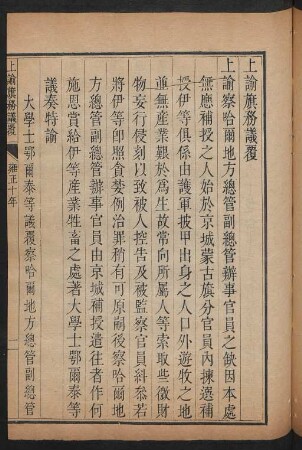 上諭旗務議覆
上諭察哈爾地方總管副總管辦事官員之缺因本處
無應補授之人始於京城蒙古旗分官員内揀選補
授伊等俱係由護軍披甲出身之人口外遊牧之地
並無産業艱於爲生故常向所屬人等索取些微財
物妄行侵刻以致被人控告及被監察官員糾叅若
將伊等卽照貪婪例治罪稍有可原嗣後察哈爾地
方總管副總管辦事官員由京城補授遣往者作何
施恩賞給伊等産業牲畜之處著大學士鄂爾泰等
議奏特諭
大學士鄂爾泰等議覆察哈爾地方總管副總管
上諭旗務議覆 雍正十年 一